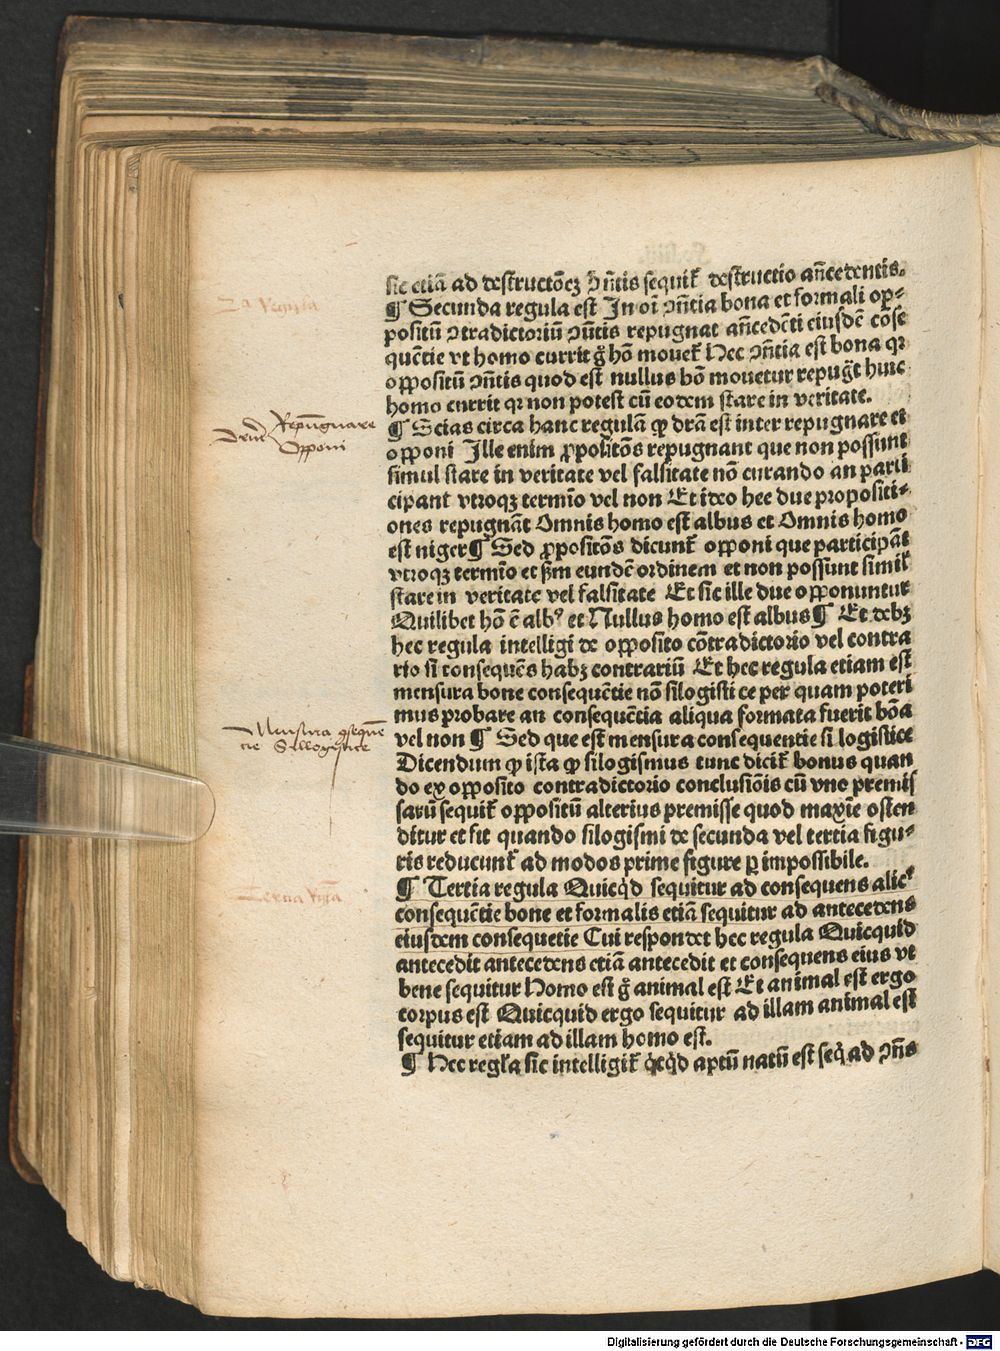 sic etiã ad destructõeꝫ ꝯñtis sequit᷑ destructio añcedentis.
¶ Secunda regula est In oĩ ꝯñtia bona et formali op-
positũ ꝯtradictoriũ ꝯñtis repugnat añcedẽti eiusdẽ cõse
quẽtie vt homo currit g̊ hõ mouet᷑ Hec ꝯñtia est bona qꝛ
oppositũ ꝯñtis quod est nullus hõ mouetur repug̃t huic
homo currit qꝛ non potest cũ eodem stare in veritate.
2a Regula
¶ Scias circa hanc regulã ꝙ drã est inter repugnare et
opponi Ille enim ꝓpositõs repugnant que non possunt
simul stare in veritate vel falsitate nõ curando an parti
cipant vtroqꝫ termĩo vel non Et ideo hee due propositi-
ones repugnãt Omnis homo est albus et Omnis homo
est niger¶ Sed ꝓpositõs dicunt᷑ opponi que participãt
vtroqꝫ termĩo et ẜm eundẽ ordinem et non possunt simil᷑
stare in veritate vel falsitate Et sic ille due opponuntur
Quilibet hõ ẽ albꝰ et Nullus homo est albus¶ Et debꝫ
hec regula intelligi de opposito cõtradictorio vel contra
rio si consequẽs habꝫ contrariũ Et hec regula etiam est
mensura bone consequẽtie nõ silogisti ce per quam poteri
mus probare an consequẽtia aliqua formata fuerit bõa
vel non ¶ Sed que est mensura consequentie si logistice
Dicendum ꝙ ista ꝙ silogismus tunc dicit᷑ bonus quan
do ex opposito contradictorio conclusiõis cũ vno premis
sarũ sequit᷑ oppositũ alterius premisse quod maxĩe osten
ditur et fit quando silogismi de secunda vel tertia figu-
ris reducunt᷑ ad modos prime figure ꝑ impossibile.
Repugnare
Opponi
Mensura ꝯsequẽ
tie Sillogistice
¶ Tertia regula Quicq̇d sequitur ad consequens alic᷑
consequẽtie bone et formalis etiã sequitur ad antecedens
eiusdem consequetie Cui respondet hec regula Quicquid
antecedit antecedens etiã antecedit et consequens eius vt
bene sequitur Homo est g̊ animal est Et animal est ergo
corpus est Quicquid ergo sequitur ad illam animal est
sequitur etiam ad illam homo est.
¶ Hec regl̃a sic intelligit᷑ q̇cq̇d aptũ natũ est seq̇ ad ꝯñs
Tertia
Digitalisierung gefördert durch die Deutsche Forschungsgemeinschaft - DFG